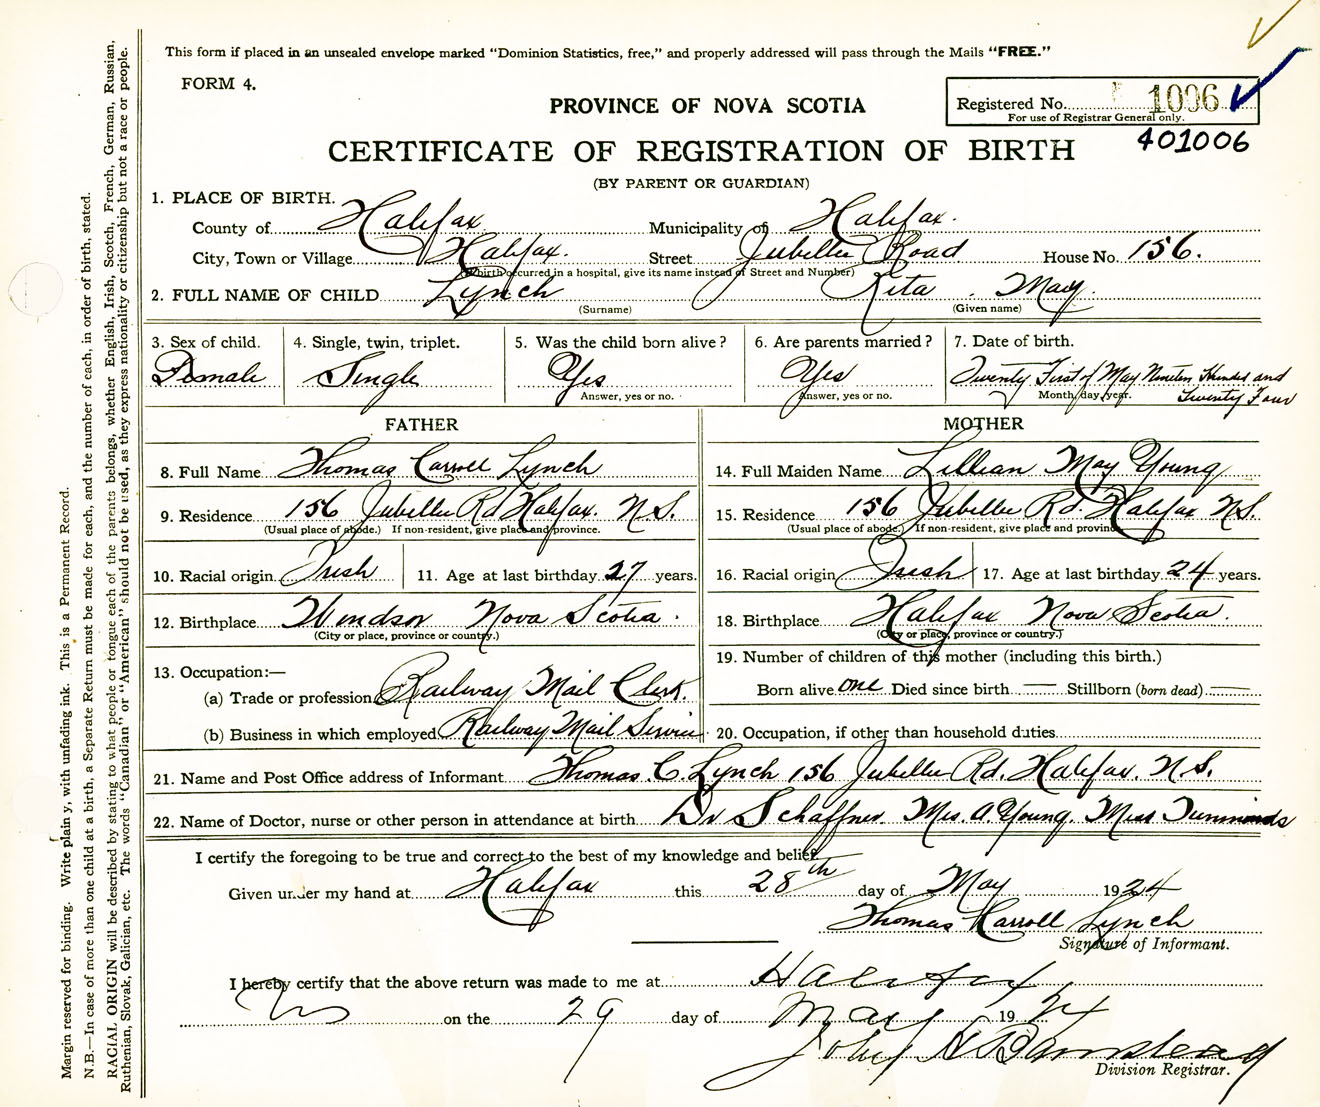 This form if placed in an unsealed envelope marked "Dominion Statistics, free," and properly addressed will pass through the Mails "FREE."
FORM 4.
PROVINCE OF NOVA SCOTIA
Registered No. 1006
For use of Registrar General only.
401006
CERTIFICATE OF REGISTRATION OF BIRTH
(BY PARENT OR GUARDIAN)
1. PLACE OF BIRTH.
County of Halifax Municipality of Halifax.
City, Town or Village Halifax. Street Jubellee Road House No. 156.
(If birth occurred in a hospital, give its name instead of Street and Number)
2. FULL NAME OF CHILD Lynch Rita May.
(Surname) (Given name)
3. Sex of child. 4. Single, twin, triplet. 5. Was the child born alive? 6. Are parents married? 7. Date of birth.
Female Single Yes Yes Twenty First of May Nineteen Hundred and
Answer, yes or no. Answer, yes or no. Month, day, year. Twenty Four
FATHER MOTHER
8. Full Name Thomas Carroll Lynch 14. Full Maiden Name Lillian May Young
9. Residence 156 Jubellee Rd Halifax. N.S. 15. Residence 156 Jubellee Rd. Halifax N.S.
(Usual place of abode.) If non-resident, give place and province. (Usual place of abode.) If non-resident, give place and province.
10. Racial origin Irish 11. Age at last birthday 27 years. 16. Racial origin Irish 17. Age at last birthday 24 years.
12. Birthplace Windsor Nova Scotia. 18. Birthplace Halifax Nova Scotia.
(City or place, province or country.) (City or place, province or country.)
13. Occupation:— 19. Number of children of this mother (including this birth.)
(a) Trade or profession Railway Mail Clerk. Born alive one Died since birth — Stillborn (born dead) —
(b) Business in which employed Railway Mail Service 20. Occupation, if other than household duties
21. Name and Post Office address of Informant Thomas. C. Lynch 156 Jubellee Rd. Halifax. N.S.
22. Name of Doctor, nurse or other person in attendance at birth Dr Schaffner Mrs. A Young. Miss
I certify the foregoing to be true and correct to the best of my knowledge and belief.
Given under my hand at Halifax this 28th day of May 1924
Thomas Carroll Lynch
Signature of Informant.
I hereby certify that the above return was made to me at Halifax
NS on the 29 day of May 1924
John H Barnstead
Division Registrar.
Margin reserved for binding. Write plainly, with unfading ink. This is a Permanent Record.
N.B.—In case of more than one child at a birth, a Separate Return must be made for each, and the number of each, in order of birth, stated.
RACIAL ORIGIN will be described by stating to what people or tongue each of the parents belongs, whether English, Irish, Scotch, French, German, Russian,
Ruthenian, Slovak, Galician, etc. The words "Canadian" or "American" should not be used, as they express nationality or citizenship but not a race or people.